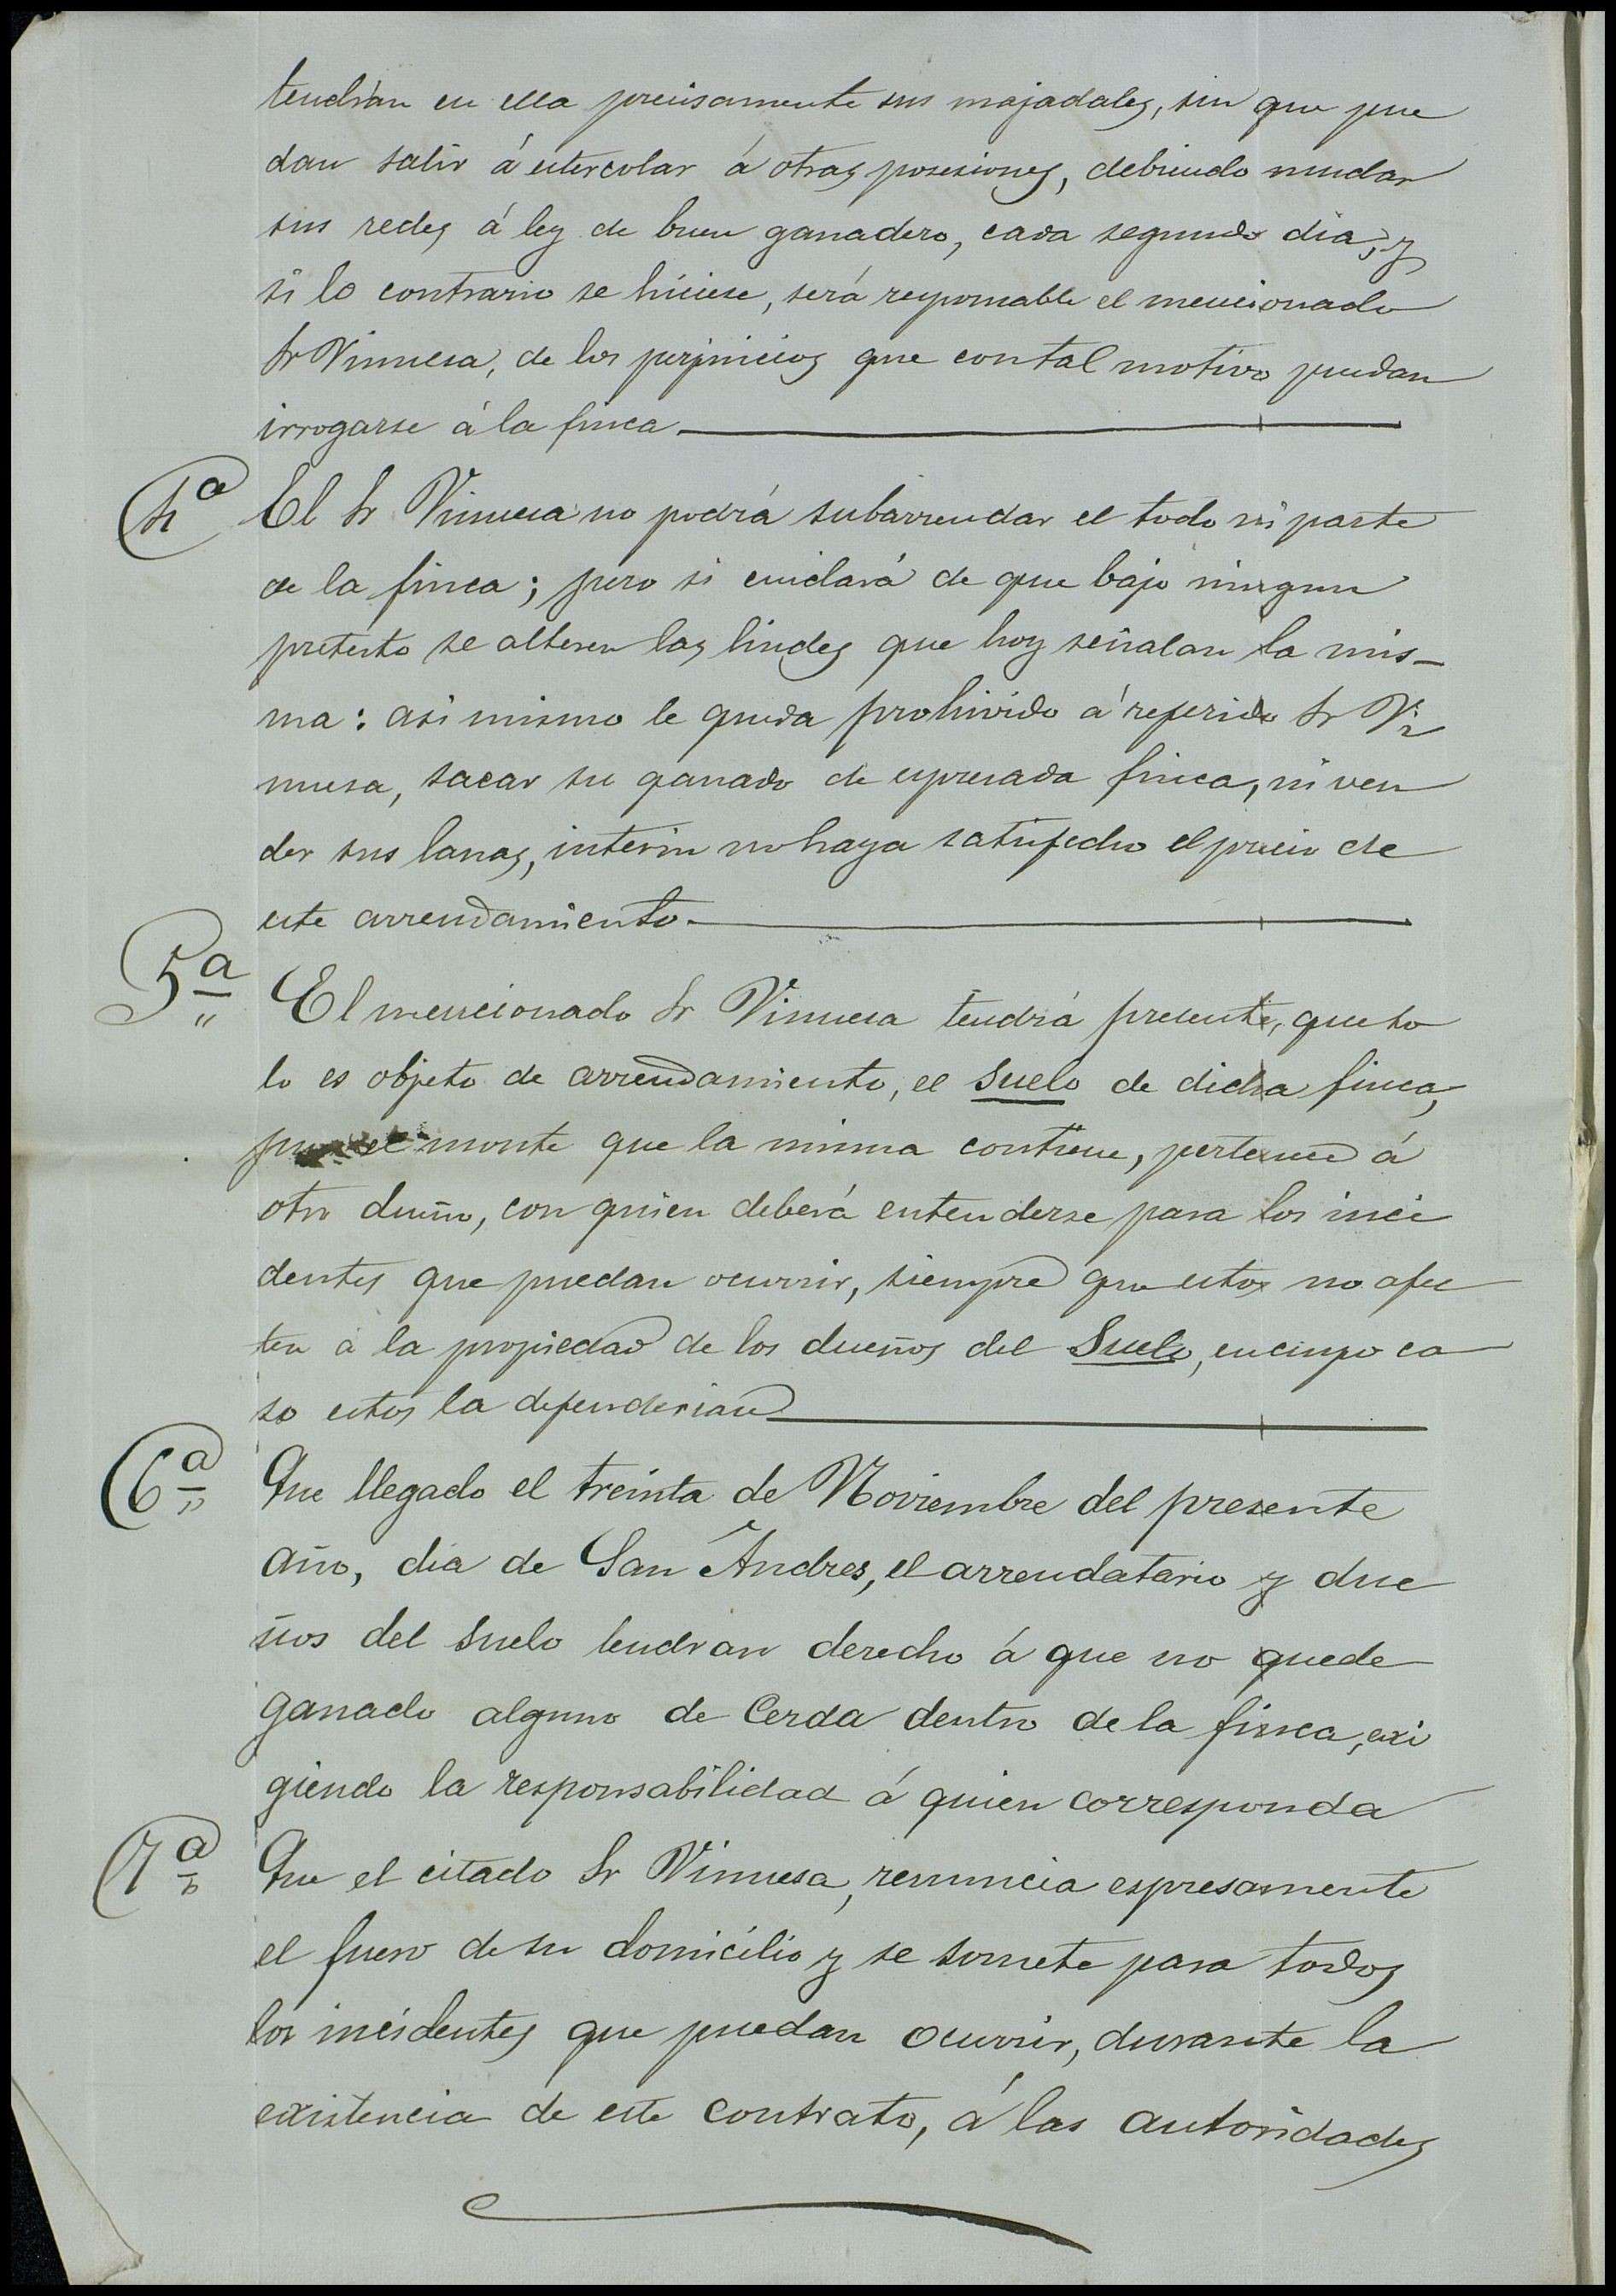 tendrán en ella precisamente sus majadales, sin que pue
dan salir á estercolar á otras posesiones, debiendo mudar
sus redes á ley de buen ganadero, cada segundo dia, y
si lo contrario se hiciese, será responsable el mencionado
Sr Vinuesa, de los perjuicios que con tal motivo puedan
irrogarse á la finca.
4ª El Sr Vinuesa no podrá subarrendar el todo ni parte
de la finca; pero si cuidará de que bajo ningun
pretesto se alteren las lindes que hoy señalan la mis-
ma: asi mismo le queda prohivido á referido Sr Vi
nuesa, sacar su ganado de espresada finca, ni ven
der sus lanas, interin no haya satisfecho el precio de
este arrendamiento.
5ª El mencionado Sr Vinuesa tendrá presente, que so
lo es objeto de arrendamiento, el suelo de dicha finca,
pues el monte que la misma contiene, pertenece á
otro dueño, con quien deberá entenderse para los inci
dentes que puedan ocurrir, siempre que estos no afec
ten á la propiedad de los dueños del Suelo, en cuyo ca
so estos la defenderian
6ª Que llegado el treinta de Noviembre del presente
año, dia de San Andres, el arrendatario y due
ños del suelo tendran derecho á que no quede
ganado alguno de Cerda dentro de la finca, exi
giendo la responsabilidad á quien corresponda
7ª Que el citado Sr Vinuesa, renuncia espresamente
el fuero de su domicilio y se somete para todos
los incidentes que puedan ocurrir, durante la
existencia de este contrato, á las autoridades